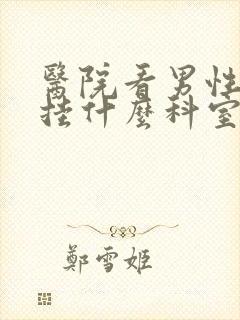 醫院看男性
挂什麼科室
鄭雪姬